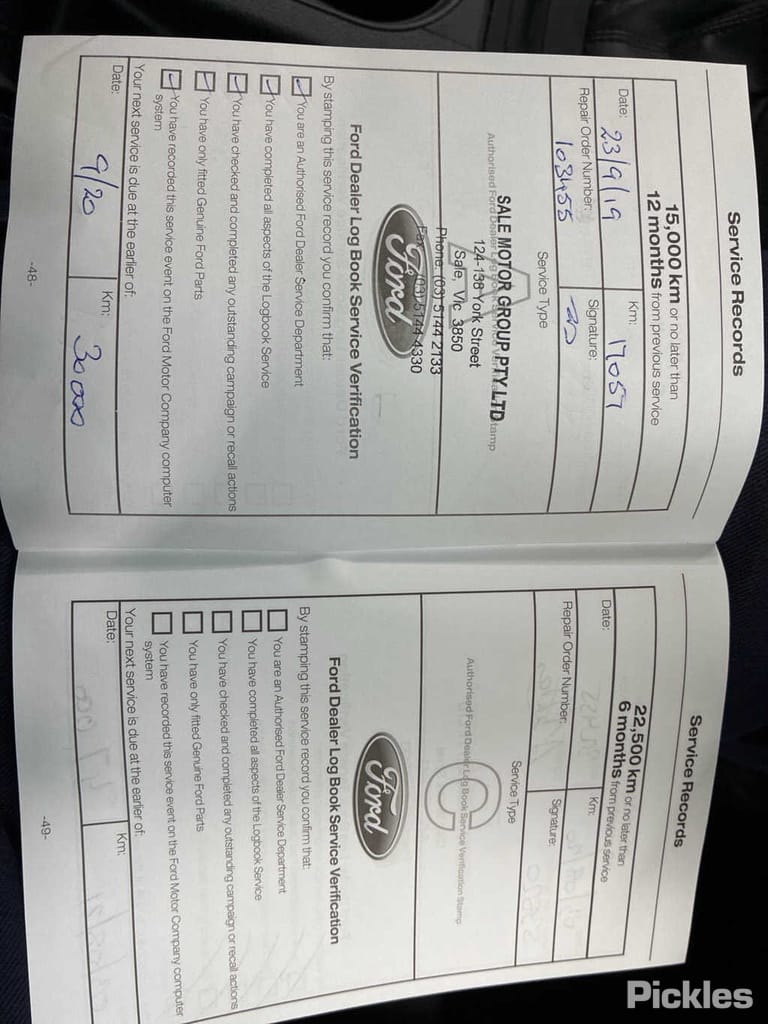 Service Records
15,000 km or no later than
12 months from previous service
Date: 23/9/19 Km: 17057
Repair Order Number: 103455 Signature:
Service Type
A
Authorised Ford Dealer Log Book Service Verification Stamp
SALE MOTOR GROUP PTY LTD
124-138 York Street
Sale, Vic 3850
Phone: (03) 5144 2133
Fax: (03) 5144 4330
Ford
Ford Dealer Log Book Service Verification
By stamping this service record you confirm that:
You are an Authorised Ford Dealer Service Department
You have completed all aspects of the Logbook Service
You have checked and completed any outstanding campaign or recall actions
You have only fitted Genuine Ford Parts
You have recorded this service event on the Ford Motor Company computer
system
Your next service is due at the earlier of:
Date: 9/20 Km: 30000
-48-
Service Records
22,500 km or no later than
6 months from previous service
Date: Km:
Repair Order Number: Signature:
Service Type
C
Authorised Ford Dealer Log Book Service Verification Stamp
Ford
Ford Dealer Log Book Service Verification
By stamping this service record you confirm that:
You are an Authorised Ford Dealer Service Department
You have completed all aspects of the Logbook Service
You have checked and completed any outstanding campaign or recall actions
You have only fitted Genuine Ford Parts
You have recorded this service event on the Ford Motor Company computer
system
Your next service is due at the earlier of:
Date: Km:
-49-
Pickles